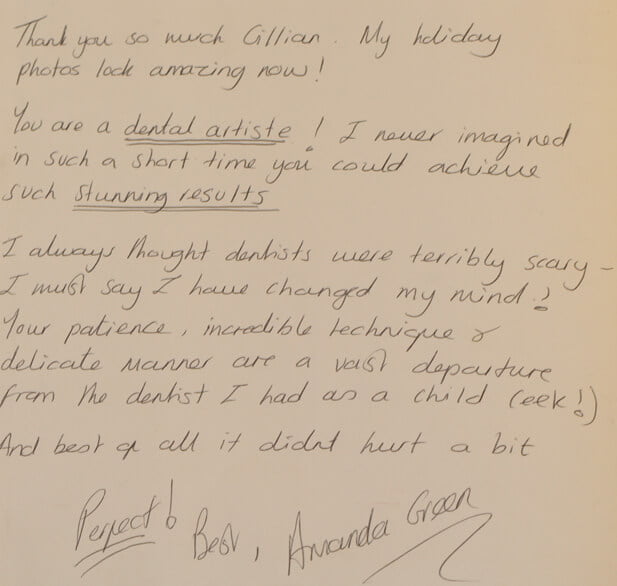 Thank you so much Gillian. My holiday
photos look amazing now!
You are a dental artiste! I never imagined
in such a short time you could achieve
such stunning results
I always thought dentists were terribly scary -
I must say I have changed my mind!
Your patience, incredible technique &
delicate manner are a vast departure
from the dentist I had as a child (eek!)
And best of all it didnt hurt a bit
Perfect! Best, Amanda Green